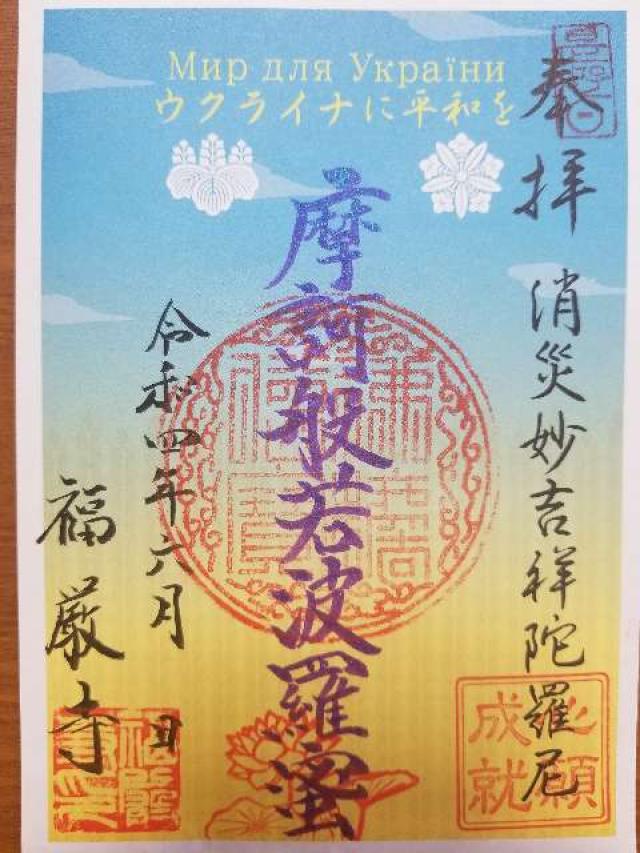 Мир для України
ウクライナに平和を
奉拝
消災妙吉祥陀羅尼
摩訶般若波羅蜜
令和四年六月 日
福厳寺
心願
成就